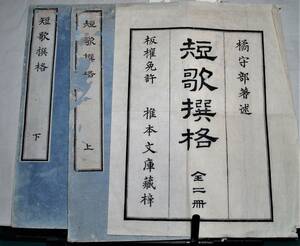 橘守部著述
短歌撰格
全二冊
板權免許 椎本文庫藏梓
短歌撰格 上
短歌撰格 下